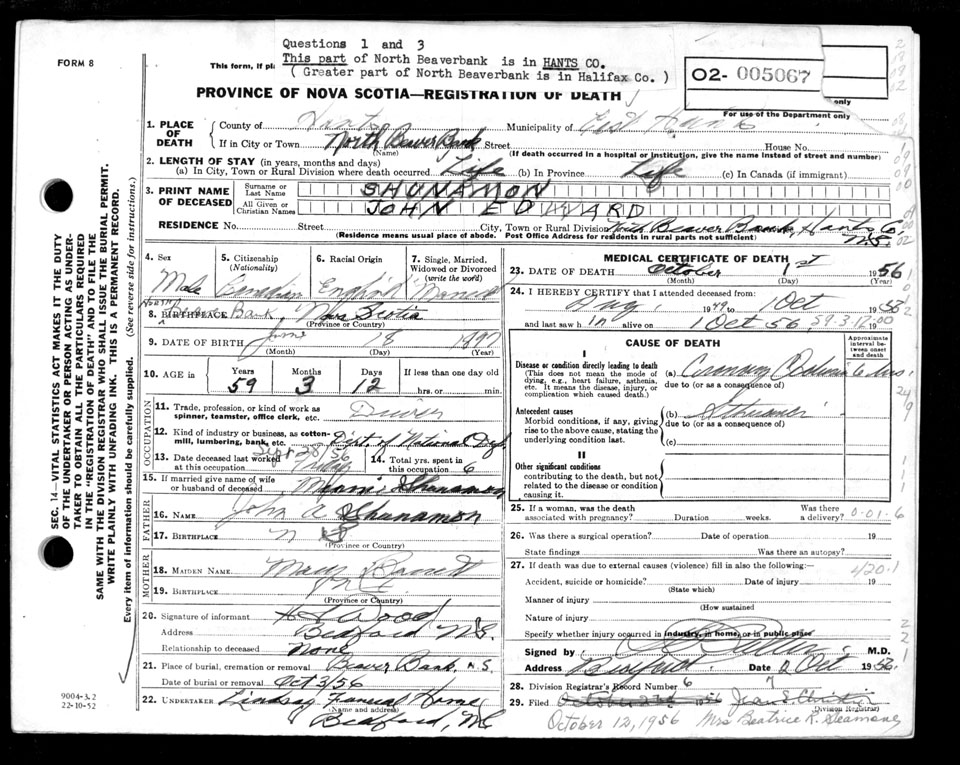 Questions 1 and 3
This part of North Beaverbank is in HANTS CO.
( Greater part of North Beaverbank is in Halifax Co. )
FORM 8
This form, if pl
O2- 005067
only
PROVINCE OF NOVA SCOTIA—REGISTRATION OF DEATH
For use of the Department only
1. PLACE OF DEATH
County of Hants Municipality of East Hants
If in City or Town North Beaver Bank Street House No.
(Name) (If death occurred in a hospital or institution, give the name instead of street and number)
2. LENGTH OF STAY (in years, months and days)
(a) In City, Town or Rural Division where death occurred Life (b) In Province Life (c) In Canada (if immigrant)
3. PRINT NAME OF DECEASED
Surname or Last Name SHUNAMON
All Given or Christian Names JOHN EDWARD
RESIDENCE No. Street City, Town or Rural Division North Beaver Bank, Hants Co. N.S.
(Residence means usual place of abode. Post Office Address for residents in rural parts not sufficient)
4. Sex Male
5. Citizenship (Nationality) Canadian
6. Racial Origin England
7. Single, Married, Widowed or Divorced (write the word) Married
8. BIRTHPLACE North Beaver Bank, Nova Scotia
(Province or Country)
9. DATE OF BIRTH June 18 1897
(Month) (Day) (Year)
10. AGE in Years Months Days If less than one day old
59 3 12 hrs. or min.
OCCUPATION
11. Trade, profession, or kind of work as spinner, teamster, office clerk, etc. Driver
12. Kind of industry or business, as cotton-mill, lumbering, bank, etc. Dept of National Def
13. Date deceased last worked at this occupation Sept 28/56
14. Total yrs. spent in this occupation 6
15. If married give name of wife or husband of deceased Minnie Shunamon
FATHER
16. NAME John A Shunamon
17. BIRTHPLACE N S
(Province or Country)
MOTHER
18. MAIDEN NAME Mary Barrett
19. BIRTHPLACE N.S.
(Province or Country)
20. Signature of informant H Wood
Address Bedford N.S.
Relationship to deceased None
21. Place of burial, cremation or removal Beaver Bank, N.S.
Date of burial or removal Oct 3/56
22. UNDERTAKER Lindsay Funeral Home
(Name and address)
Bedford, N.S.
MEDICAL CERTIFICATE OF DEATH
23. DATE OF DEATH October 1st 1956
(Month) (Day) (Year)
24. I HEREBY CERTIFY that I attended deceased from:
Aug. 1949 to 1 Oct 1956
and last saw him alive on 1 Oct 56, 59-3-12-00 19
CAUSE OF DEATH
Approximate interval between onset and death
I
Disease or condition directly leading to death
(This does not mean the mode of dying, e.g., heart failure, asthenia, etc. It means the disease, injury, or complication which caused death.)
(a) Coronary
due to (or as a consequence of)
Antecedent causes
Morbid conditions, if any, giving rise to the above cause, stating the underlying condition last.
(b)
due to (or as a consequence of)
(c)
II
Other significant conditions
contributing to the death, but not related to the disease or condition causing it.
25. If a woman, was the death associated with pregnancy? Duration weeks. Was there a delivery? 0-01-6
26. Was there a surgical operation? Date of operation 19
State findings Was there an autopsy?
27. If death was due to external causes (violence) fill in also the following:— 420.1
Accident, suicide or homicide? Date of injury 19
(State which)
Manner of injury
(How sustained
Nature of injury
Specify whether injury occurred in industry, in home, or in public place
Signed by M.D.
Address Bedford. Date 2 Oct 1956.
28. Division Registrar's Record Number 6 7
29. Filed 1956 Jean E. Christie
(Division Registrar)
October 12, 1956 Mrs Beatrice R. Seamone
SEC. 14—VITAL STATISTICS ACT MAKES IT THE DUTY
OF THE UNDERTAKER OR PERSON ACTING AS UNDER-
TAKER TO OBTAIN ALL THE PARTICULARS REQUIRED
IN THE "REGISTRATION OF DEATH" AND TO FILE THE
SAME WITH THE DIVISION REGISTRAR WHO SHALL ISSUE THE BURIAL PERMIT.
WRITE PLAINLY WITH UNFADING INK. THIS IS A PERMANENT RECORD.
Every item of information should be carefully supplied. (See reverse side for instructions.)
9004-3.2
22-10-52